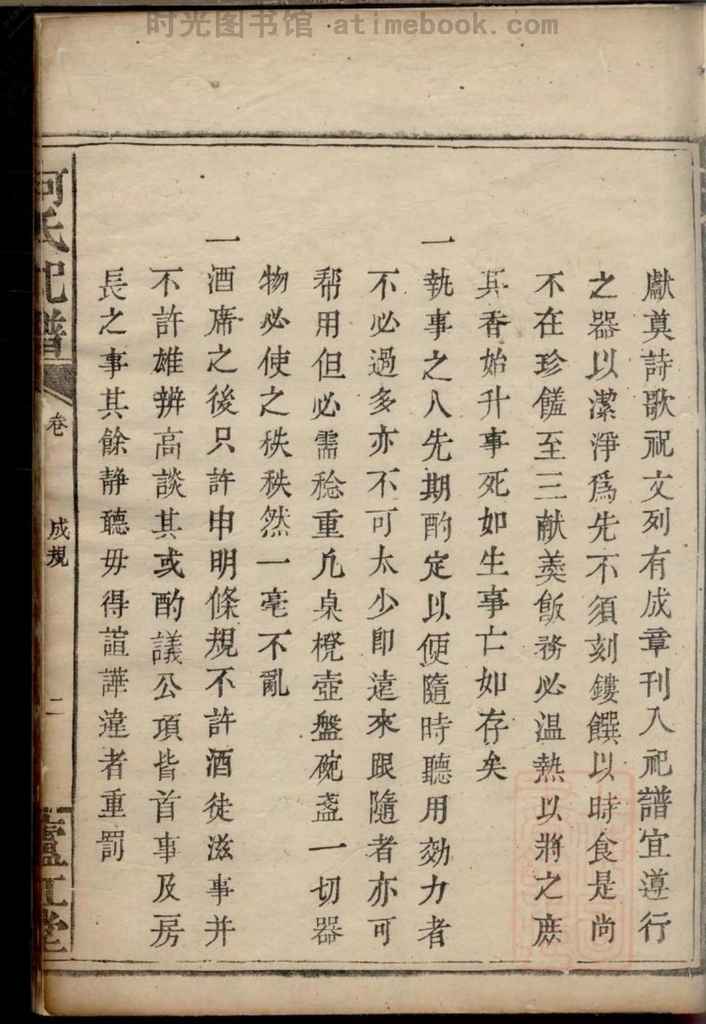 时光图书馆 atimebook.com
獻奠詩歌祝文列有成章刊入祀譜宜遵行
之器以潔淨爲先不須刻鏤饌以時食是尚
不在珍饈至三献羹飯務必温熱以將之庶
其香始升事死如生事亡如存矣
一執事之人先期酌定以便隨時聽用効力者
不必過多亦不可太少即遠來跟隨者亦可
帮用但必需稔重几桌櫈壺盤碗盞一切器
物必使之秩秩然一毫不亂
一酒席之後只許申明條規不許酒徒滋事并
不許雄辨高談其或酌議公項皆首事及房
長之事其餘静聽毋得諠譁違者重罰
何氏祀譜 卷 成規 二 廬江堂